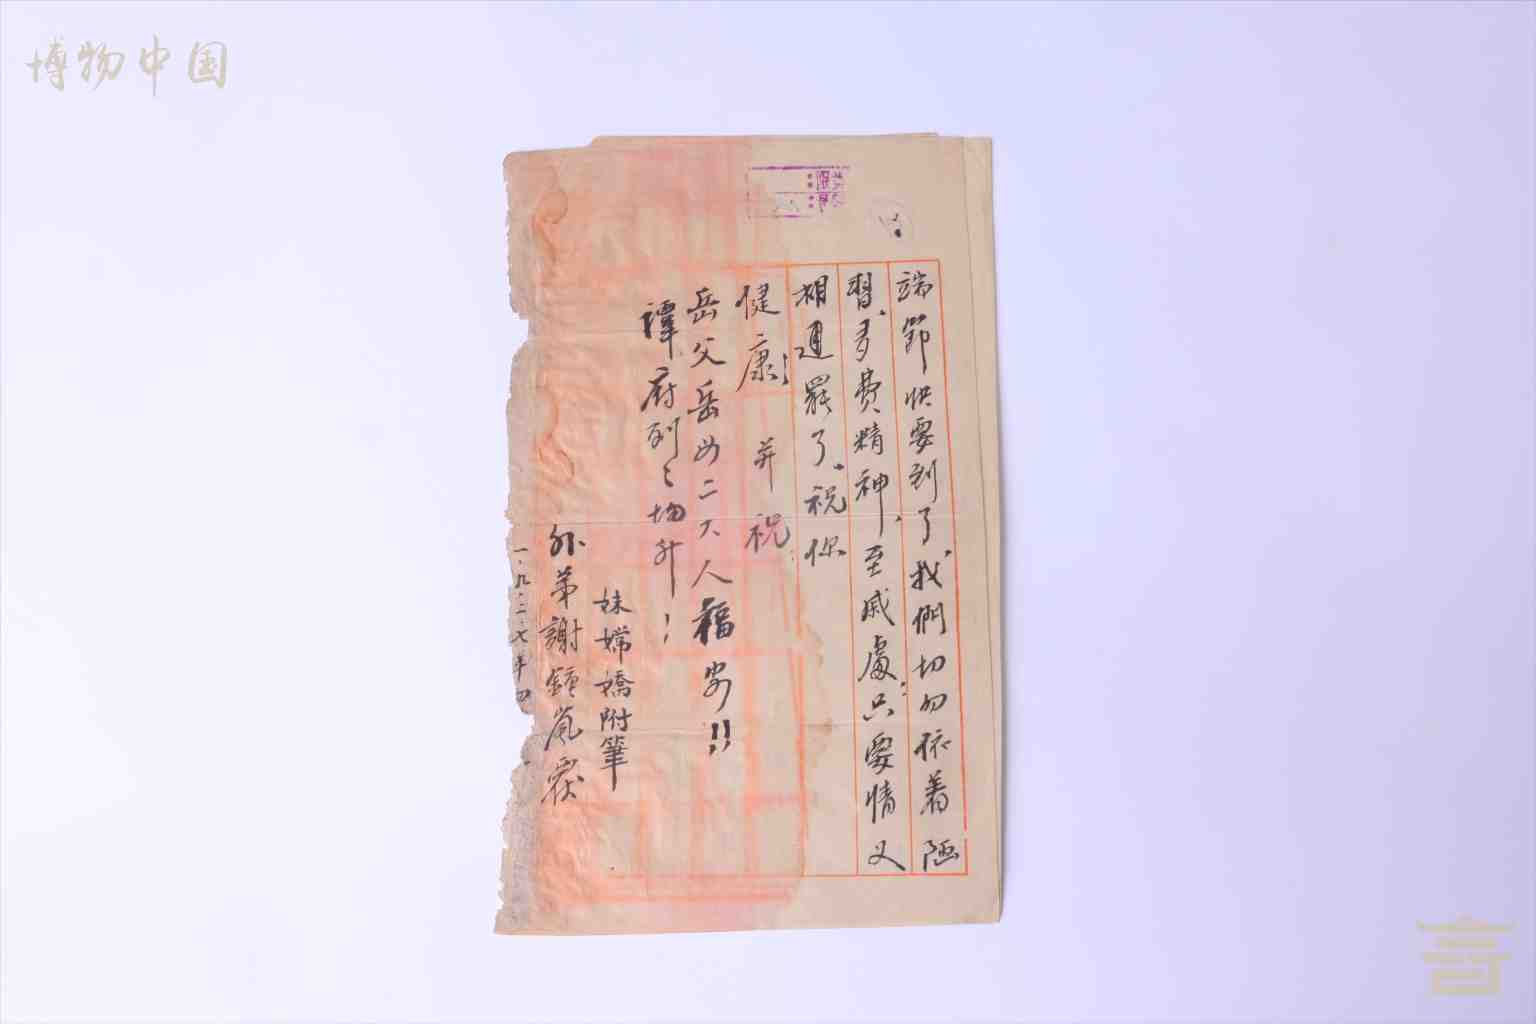 博物中国
端節快要到了，我們切勿依着陋
習，多費精神，至戚處，只要情义
相通罷了。祝你
健康！ 并祝
岳父岳母二大人福安！！
譚府列々均升！
妹嫦嬌附筆
外弟謝鍾嵐
一九二七年四